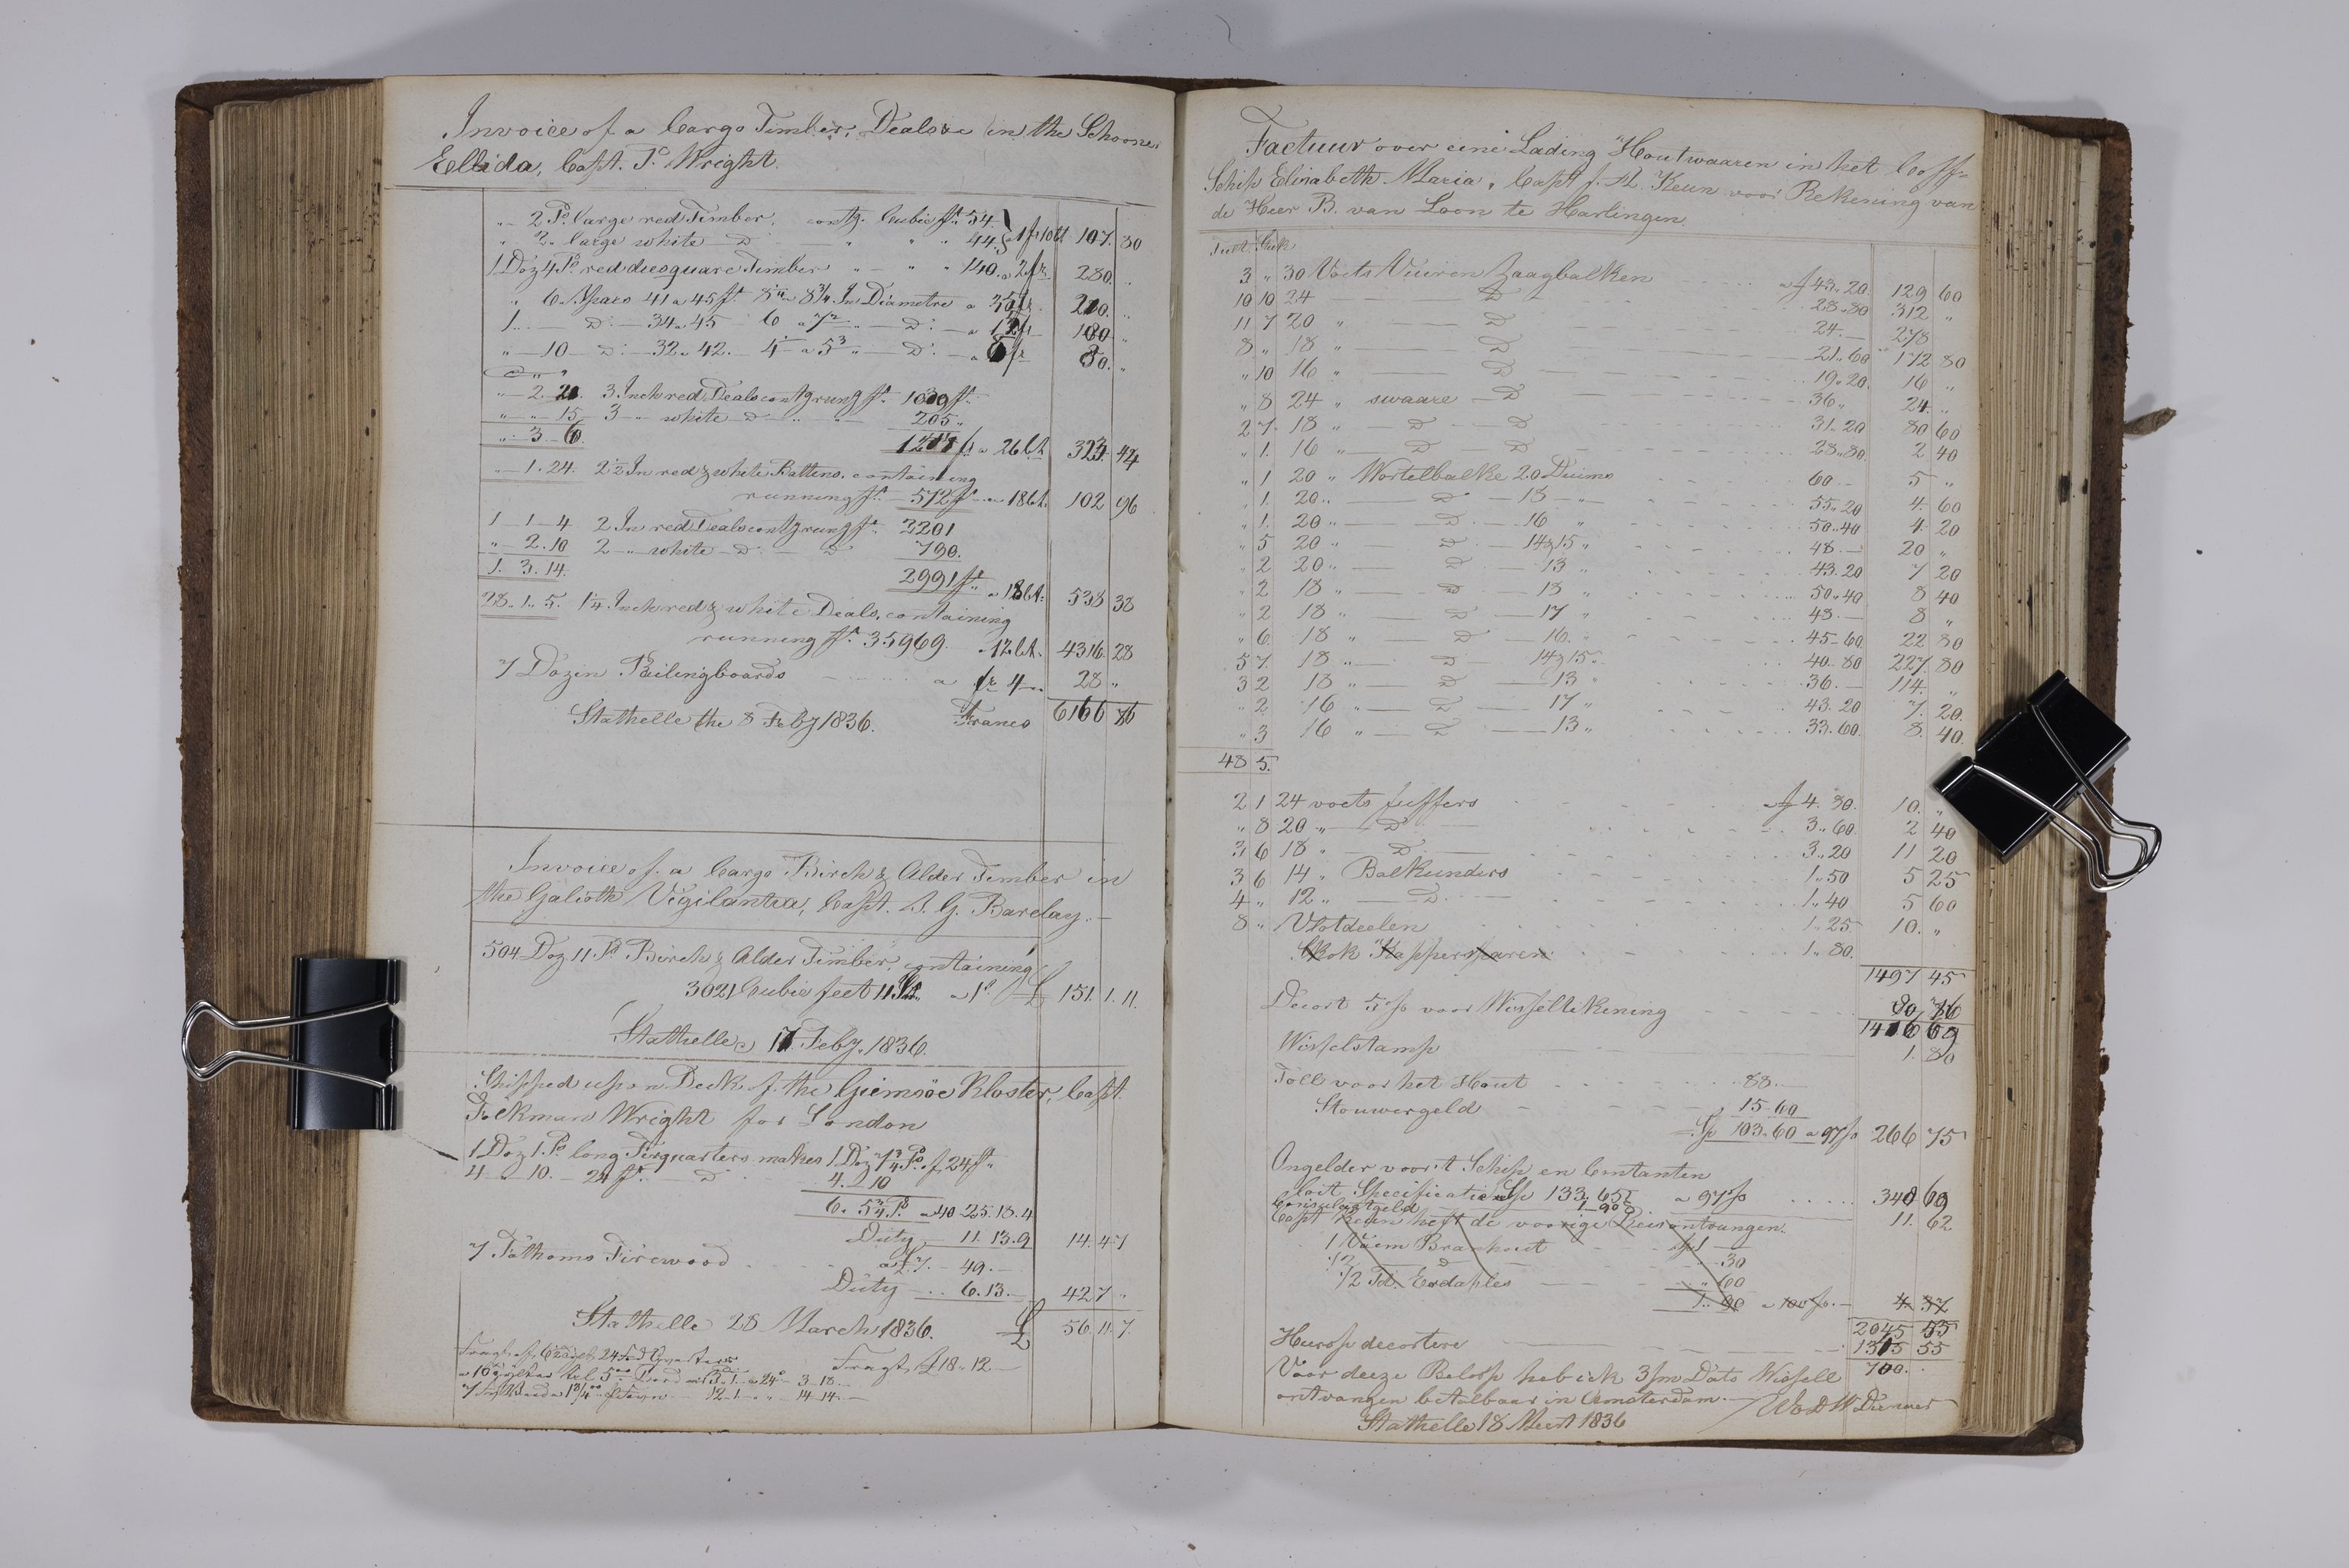 Invoice of a Cargo Timber, Deals &c in the Schooner
Ellida, Capt. Ts. Wright.
" 2 Ps large red Timber, contg. Cubic ft. 54
" 2 " large white D " " " 44 a 1 fr 10 Ct 107. 80
1 Doz 4 Ps red diesquare Timber " " " 140. a 2 fr. 280. "
" 6 Spars 41 a 45 ft. 8 a 8 3/4 In Diametre a fr. 210. "
1 " D. 34 a 45 6 a 7 D. a 180 "
" 10 D. 32 a 42. 4 a 5 D. a 8 fr 80. "
" 2. 21. 3 Inch red Deals contg rung ft.
" " 15 3 " white D " " 205 "
" 3 6. ft a 26 Ct 42
" 1. 24. 2 1/2 In red & white Battens, containing
running ft. 572 ft a 18 Ct. 102 96
1 1 4 2 In red Deals contg rung ft. 2201
" 2. 10 2 " white D D 790.
1. 3. 14. 2991 ft. a 18 Ct. 538 38
28. 1. 5. 1 1/4 Inch red & white Deals, containing
running ft. 35969. a 12 Ct. 4316. 28
7 Dozin Pailingboards a fr 4 " 28 "
Stathelle the 8 Feby 1836. Francs
Invoice of a Cargo Birch & Alder Timber in
the Galioth Vigilantia, Capt. A. G. Barclay.
504 Doz 11 Ps Birch & Alder Timber, containing
3021 Cubic feet 11 a 1s. £ 151. 1. 11.
Stathelle 17 Feby. 1836.
Shipped upon Deck of the Giemsöe Kloster, Capt.
Folkman Wright for London
1 Doz 1 Ps long Firquarters makes 1 Doz 7 3/4 Ps. of 24 ft "
4 10. 24 ft. D 4. 10
6. 5 3/4 Ps a 40 25. 18. 4
Duty 11. 13. 9 14. 4 7
7 Fathoms Firewood a £ 7. 49.
Duty 6. 13. 42 7 "
Stathelle 28 March 1836. £ 56. 11. 7.
Fragt £ 18. 12
Factuur over eine Lading Houtwaaren in het Coff
Schip Elisabeth Maria, Capt J. H. Keun voor Rekening van
de Heer B. van Loon te Harlingen.
3 " 30 Voets Vüiren Zaagbalken a f 43. 20. 129 60
10 10 24 " D 28. 80 312 "
11 7 20 " D 24. 278
8 " 18 " D 21. 60 172 80
" 10 16 " D 19. 20. 16 "
" 8 24 " swaare D 36 " 24. "
2 7. 18 " D D 31. 20 80 60
" 1. 16 " D D 28. 80. 2 40
" 1 20 " Wortelbalke 20 Duims 60. 5 "
" 1. 20 " D 18 " 55. 20 4. 60
" 1. 20 " D 16 " 50. 40 4. 20
" 5 20 " D 14 & 15 " 48. 20 "
" 2 20 " D 13 " 43. 20 7 20
" 2 18 " D 18 " 50. 40 8 40
" 2 18 " D 17 " 48. 8 "
" 6. 18 " D 16. " 45. 60. 22 80
5 7. 18 " D 14 & 15 " 40. 80 227 80
3 2 18 " D 13 " 36. 114. "
" 2 16 " D 17 " 43. 20 7. 20.
" 3 16 " D 13 " 33. 60. 8. 40.
48 5.
2 1 24 voets Juffers a f 4. 80. 10. "
" 8 20 " D 3. 60. 2 40
3 6 18 " D 3. 20 11 20
3 6 14 " Balkunders 1. 50 5 25
4 " 12 " D 1. 40 5 60
8 " Vlotdeelen 1. 25 10. "
1. 80.
1497 45
Decort 5 % voor Wissellekening
69
Wisselstamp 1. 80
Toll voor het Hout 88.
Stouwergeld 15. 60
Sp 103. 60 a 97 % 266 75
Ongelder voor 't Schip en Contanten
Loit Specification Sp 133. 65 a 97 % 69
Consulaatgeld 1 90
Capt Keun heft de voorige Reis ontvangen. 11. 62
1 Vaem Branhout 1
1/2 30
1/2 Td. Erdaples " 60
1. 90 a 100 %. 4. 37
2045 55
Huerop decortere 55
700.
Voor deeze Beloop heb ick 3/m Dato Wissell
ontvangen betalbaar in Amsterdam.
Stathelle 18 Meert 1836